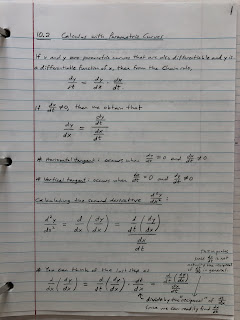 1
10.2 Calculus with Parametric Curves
If x and y are parametric curves that are also differentiable and y is
a differentiable function of x, then from the Chain rule,
dy/dt = dy/dx · dx/dt
If dx/dt ≠ 0, then we obtain that
dy/dx = (dy/dt)/(dx/dt)
* Horizontal tangent: occurs when dy/dt = 0 and dx/dt ≠ 0.
* Vertical tangent: occurs when dx/dt = 0 and dy/dt ≠ 0.
Calculating the second derivative d²y/dx²
d²y/dx² = d/dx (dy/dx) = d/dt (dy/dx) / (dx/dt)
* You can think of the last step as
d/dx (dy/dx) = d/dt (dy/dx) · dt/dx = d/dt (dy/dx) / (dx/dt)
divide by the "reciprocal" of
since we can readily find dx/dt